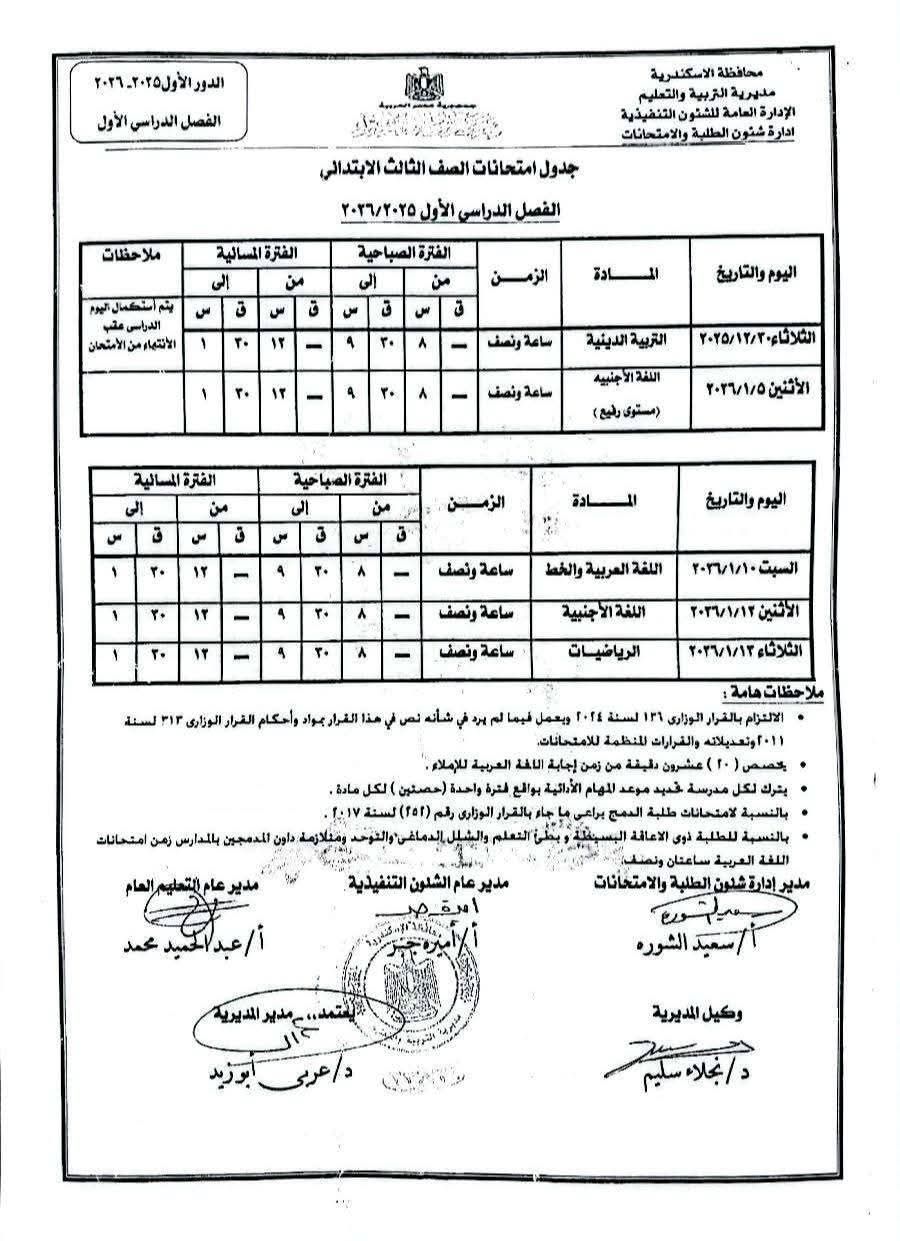 محافظة الاسكندرية
مديرية التربية والتعليم
الإدارة العامة للشئون التنفيذية
ادارة شئون الطلبة والامتحانات
جمهورية مصر العربية
الدور الأول ٢٠٢٥ـ ٢٠٢٦
الفصل الدراسي الأول
جدول امتحانات الصف الثالث الابتدائي
الفصل الدراسي الأول ٢٠٢٦/٢٠٢٥
اليوم والتاريخ المـــادة الزمن الفترة الصباحية الفترة المسائية ملاحظات
من إلى من إلى
ق س ق س ق س ق س
الثلاثاء ٢٠٢٥/١٢/٣٠ التربية الدينية ساعة ونصف — ٨ ٣٠ ٩ — ١٢ ٣٠ ١ يتم أستكمال اليوم
الدراسى عقب
الأنتهاء من الأمتحان
الأثنين ٢٠٢٦/١/٥ اللغة الأجنبيه ساعة ونصف — ٨ ٣٠ ٩ — ١٢ ٣٠ ١
(مستوى رفيع)
اليوم والتاريخ المـــادة الزمـــن الفترة الصباحية الفترة المسائية
من إلى من إلى
ق س ق س ق س ق س
السبت ٢٠٢٦/١/١٠ اللغة العربية والخط ساعة ونصف — ٨ ٣٠ ٩ — ١٢ ٣٠ ١
الأثنين ٢٠٢٦/١/١٢ اللغة الأجنبية ساعة ونصف — ٨ ٣٠ ٩ — ١٢ ٣٠ ١
الثلاثاء ٢٠٢٦/١/١٣ الرياضيـات ساعة ونصف — ٨ ٣٠ ٩ — ١٢ ٣٠ ١
ملاحظات هامة :
• الالتزام بالقرار الوزارى ١٣٦ لسنة ٢٠٢٤ ويعمل فيما لم يرد في شأنه نص في هذا القرار بمواد وأحكام القرار الوزارى ٣١٣ لسنة
٢٠١١ وتعديلاته والقرارات المنظمة للامتحانات.
• يخصص ( ٢٠ ) عشرون دقيقة من زمن إجابة اللغة العربية للإملاء .
• يترك لكل مدرسة تحديد موعد المهام الأدائية بواقع فترة واحدة (حصتين ) لكل مادة .
• بالنسبة لامتحانات طلبة الدمج يراعى ما جاء بالقرار الوزارى رقم (٢٥٢) لسنة ٢٠١٧ .
• بالنسبة للطلبة ذوى الاعاقة البسيطة و بطئ التعلم والشلل الدماغى والتوحد ومتلازمة داون المدمجين بالمدارس زمن امتحانات
اللغة العربية ساعتان ونصف.
مدير إدارة شئون الطلبة والامتحانات مدير عام الشئون التنفيذية مدير عام التعليم العام
أ/ سعيد الشوره أ/ أميره جبر أ/ عبد الحميد محمد
وكيل المديرية يعتمد،، مدير المديرية
د/ نجلاء سليم د/ عربى أبو زيد